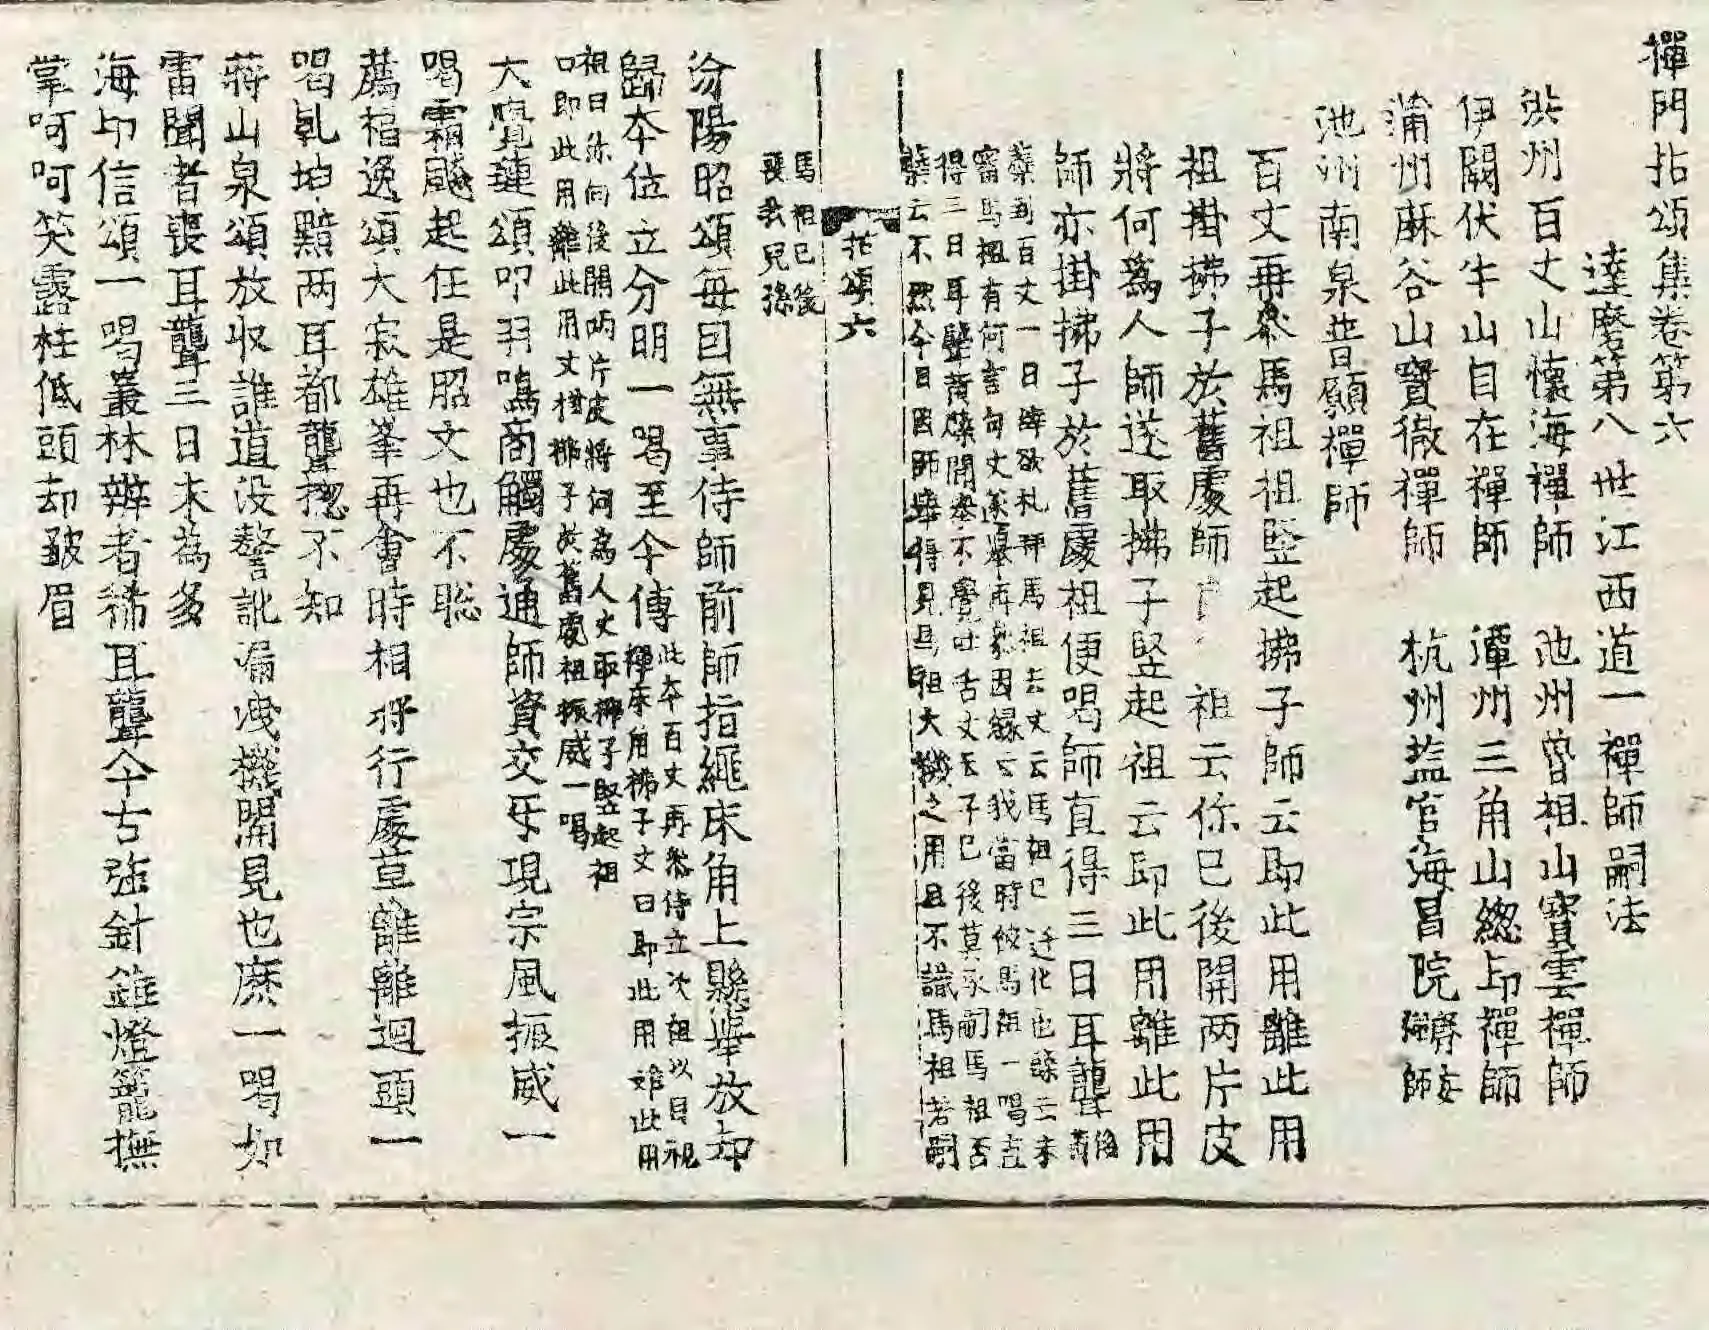 禪門拈頌集卷第六
達磨第八世江西道一禪師嗣法
洪州百丈山懷海禪師　池州曾相山寶雲禪師
伊闕伏牛山自在禪師　潭州三角山緫印禪師
蒲州麻谷山寶徹禪師　杭州盐官海昌院齊安禪師
池州南泉普願禪師
百丈再叅馬祖祖竪起拂子師云即此用離此用
祖掛拂子於舊處師　祖云你已後開两片皮
將何爲人師遂取拂子竪起祖云即此用離此用
師亦掛拂子於舊處祖便喝師直得三日耳聾後黃
蘗到百丈一日辝欲礼拜馬祖去丈云馬祖已迁化也蘗云未
審馬祖有何言句丈遂擧再叅因緣云我當時被馬祖一喝直
得三日耳聾黃蘗聞擧不覺吐舌丈云子已後莫承嗣馬祖否
蘗云不然今日因師擧得見馬祖大機之用且不識馬祖若嗣
拈頌六
馬祖已後
喪我兒孫
汾陽昭頌每因無事侍師前師指繩床角上懸擧放却
歸本位立分明一喝至今傳此本百丈再叅侍立次祖以目視
禪床角拂子丈曰即此用離此用
祖曰你向後開两片皮將何為人丈取拂子竪起祖
曰即此用離此用丈掛拂子於舊處祖振威一喝
大覺璉頌叩羽鳴商觸處通師資交牙現宗風振威一
喝霜颷起任是昭文也不聡
薦福逸頌大寂雄峯再會時相将行處草離離迴頭一
喝乹坤黯两耳都聾揔不知
蔣山泉頌放収誰道没謷訛漏洩機關見也麽一喝如
雷聞者喪耳聾三日未為多
海印信頌一喝叢林辨者稀耳聾今古強針錐燈籠撫
掌呵呵笑露柱低頭却皺眉